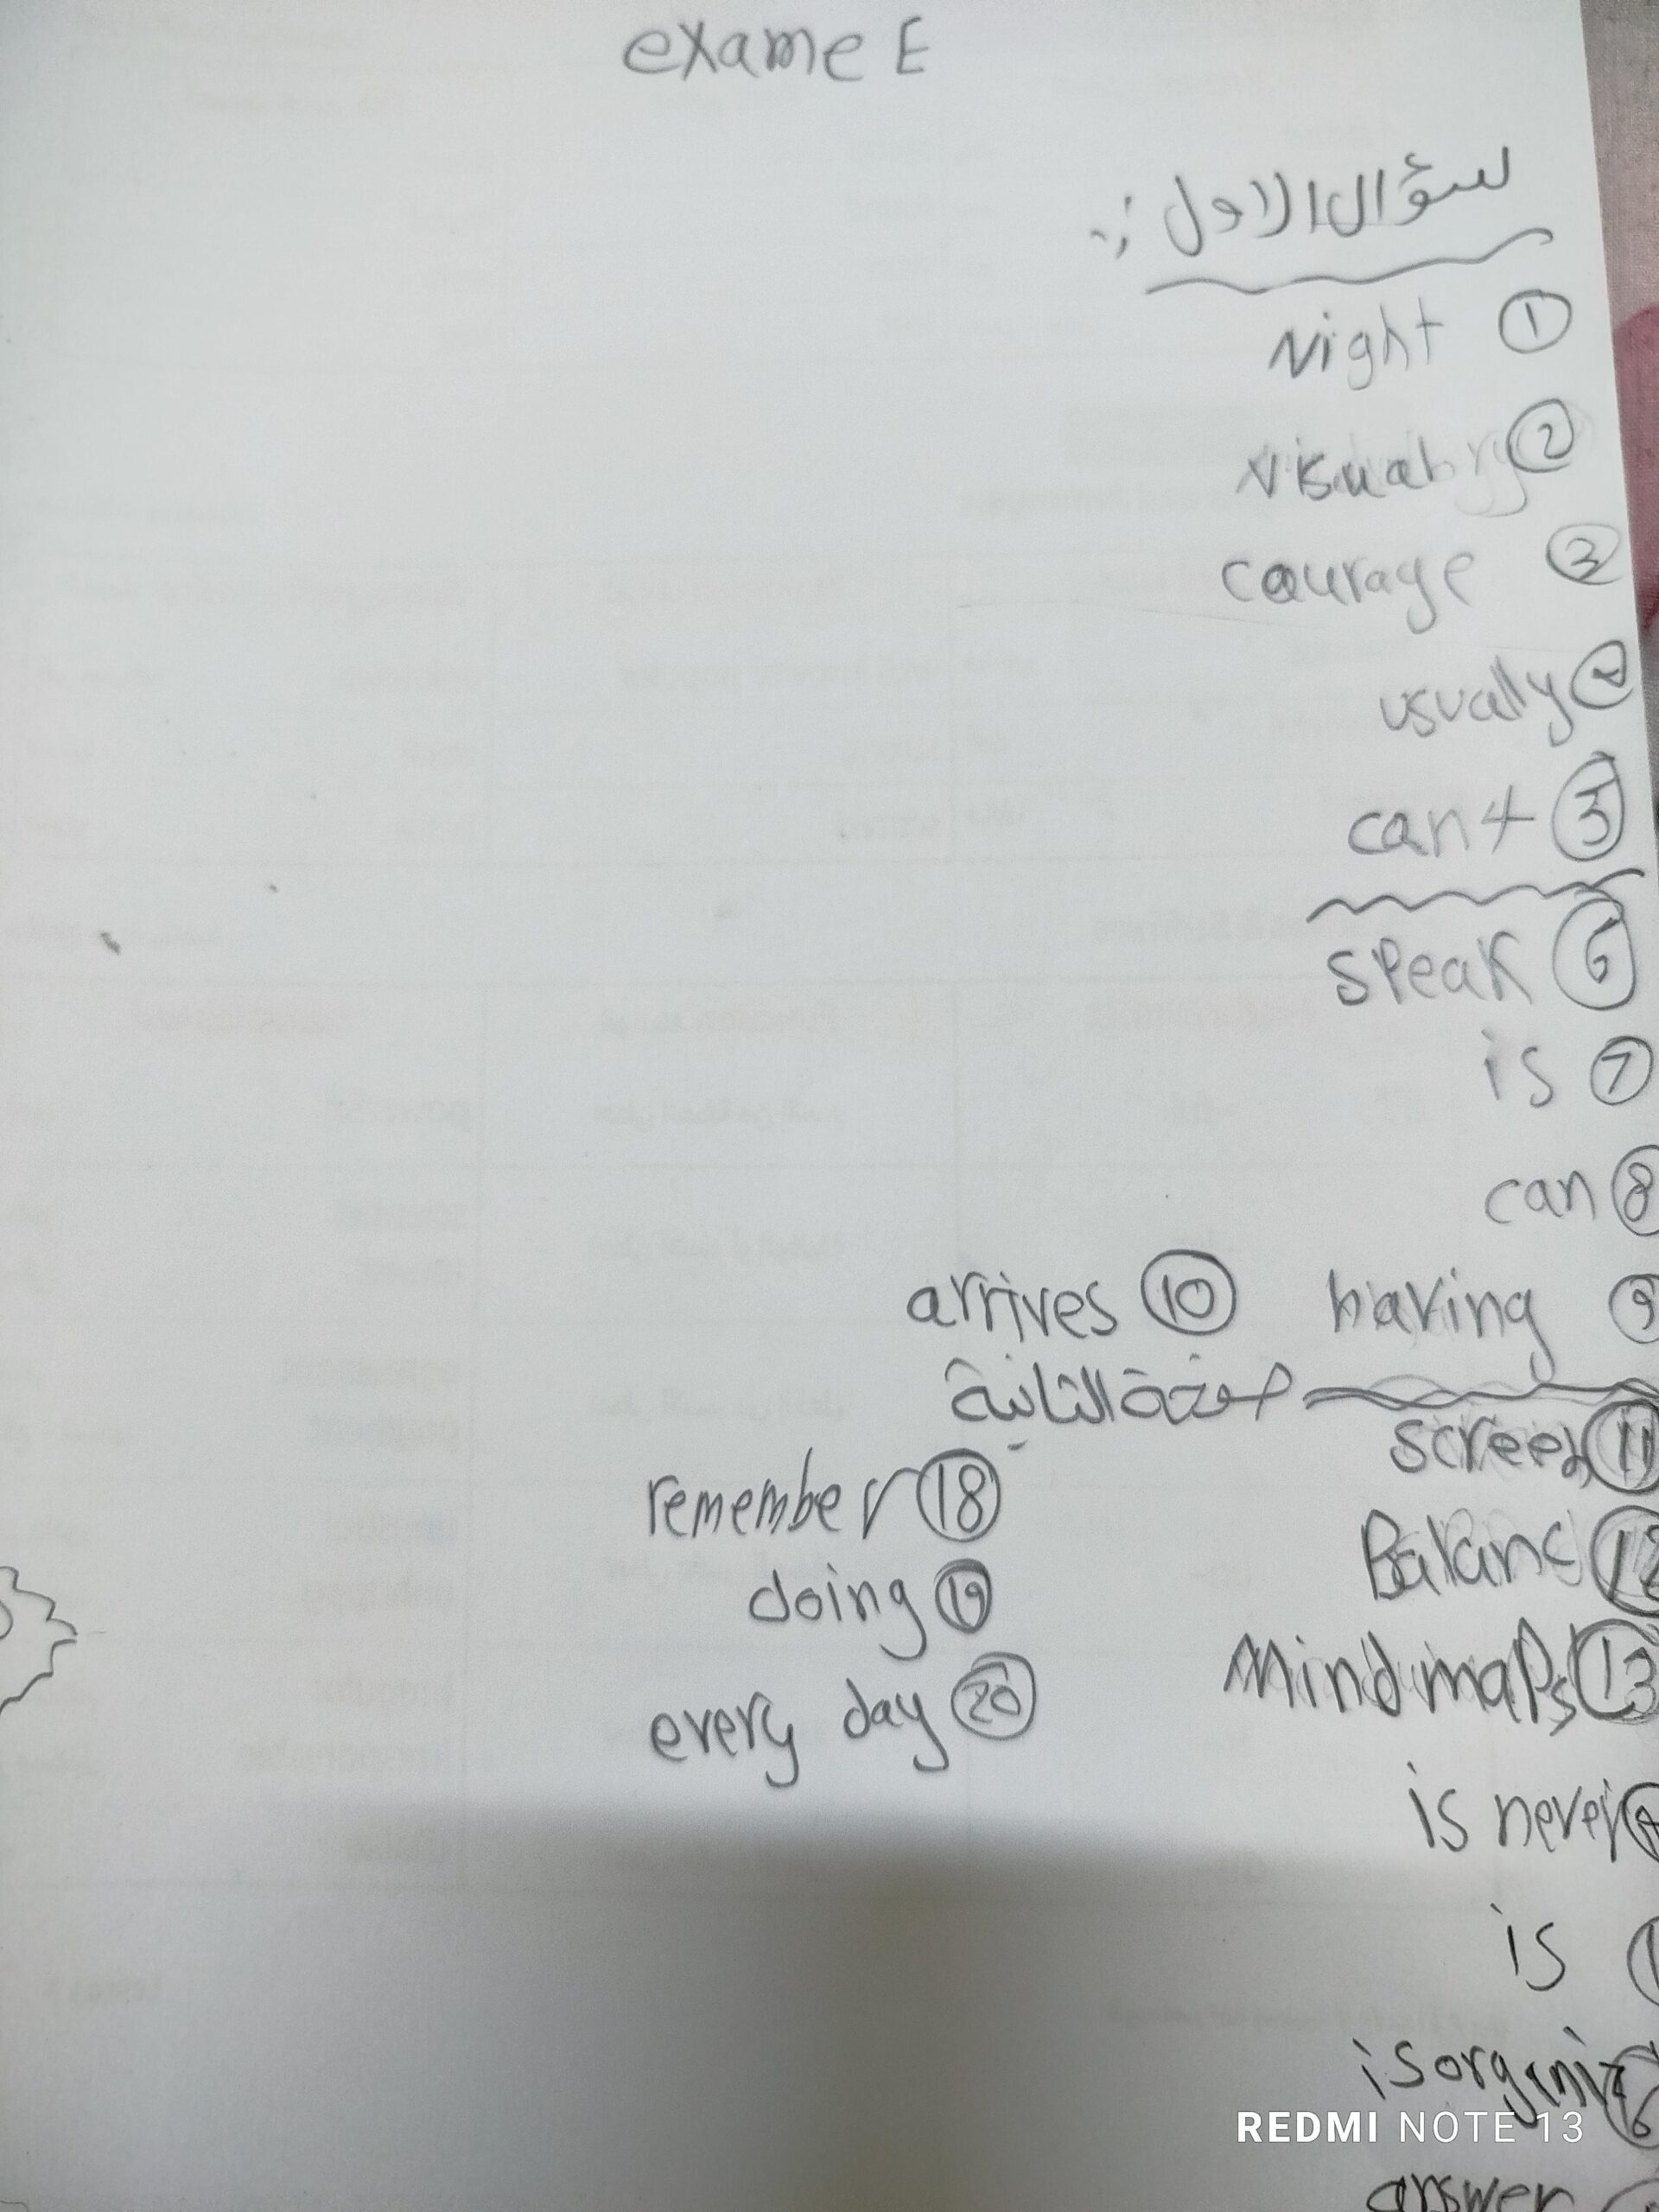 exame E
لسؤال الاول :.
① Night
②
③ courage
④ usually
⑤ can't
⑥ speak
⑦ is
⑧ can
⑨ having ⑩ arrives
صفحة الثانية
⑪ screen ⑱ remember
⑫ Balanc ⑲ doing
⑬ Mind maps ⑳ every day
is never
is
⑯ is organiz
answer
REDMI NOTE 13